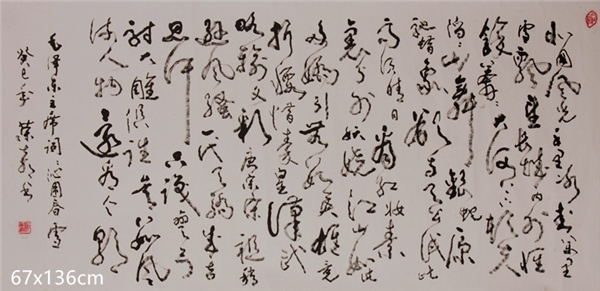 北国风光千里冰封万里
雪飘望长城内外惟
馀莽莽大河上下顿失
滔滔山舞银蛇原
驰蜡象欲与天公试比
高须晴日看红妆素
裹分外妖娆江山如此
多娇引无数英雄竞
折腰惜秦皇汉武
略输文采唐宗宋祖稍
逊风骚一代天骄成吉
思汗只识弯弓
射大雕俱往矣数风
流人物还看今朝
毛泽东主席词沁园春雪
癸巳年 书
67x136cm